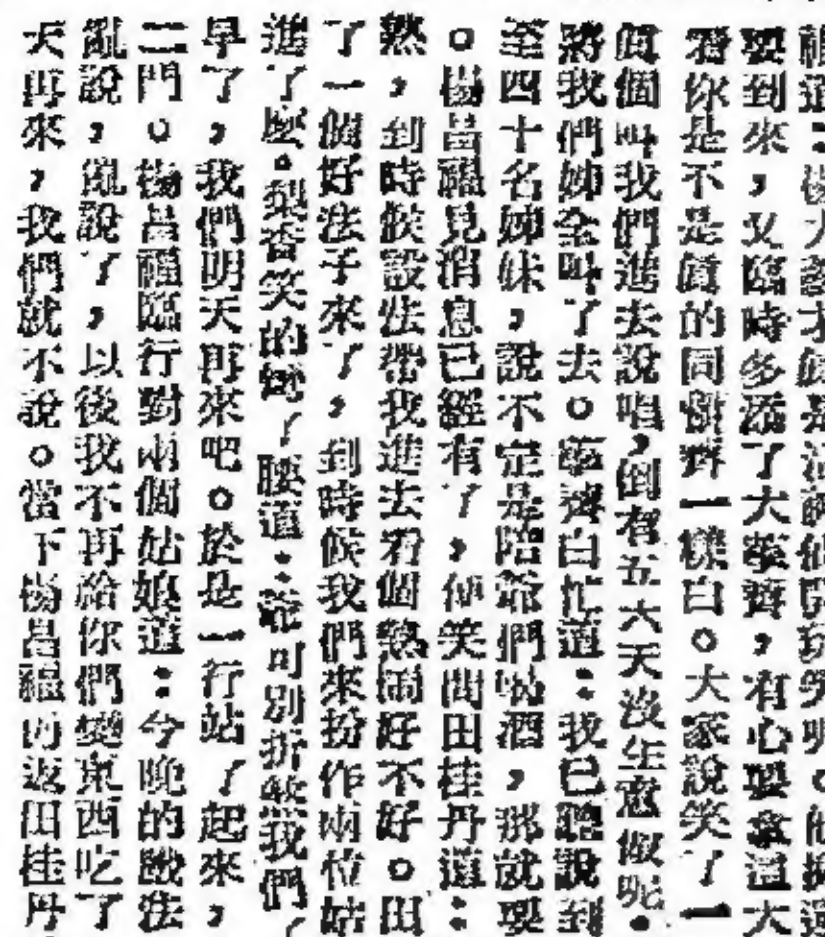 道：楊大
要到來，又臨時多添了大荸薺，有心要拿這大
看你是不是真的同荸薺一樣白。大家說笑了一
真個叫我們進去說唱，倒有五六天沒生意做呢。
將我們姊全叫了去。荸薺白忙道：我已聽說到
至四十名姊妹，說不定是陪爺們喝酒，那就要
。楊昌福見消息已經有了，便笑問田桂丹道：
熱，到時候設法帶我進去看個熱鬧好不好。田
了一個好法子來了，到時候我們來扮作兩位姑
進了麼。梨香笑的彎了腰道：爺可別折煞我們了
早了，我們明天再來吧。於是一行站了起來，
二門。楊昌福臨行對兩個姑娘道：今晚的戲法
亂說，亂說了，以後我不再給你們變東西吃了
天再來，我們就不說。當下楊昌福再返田桂丹